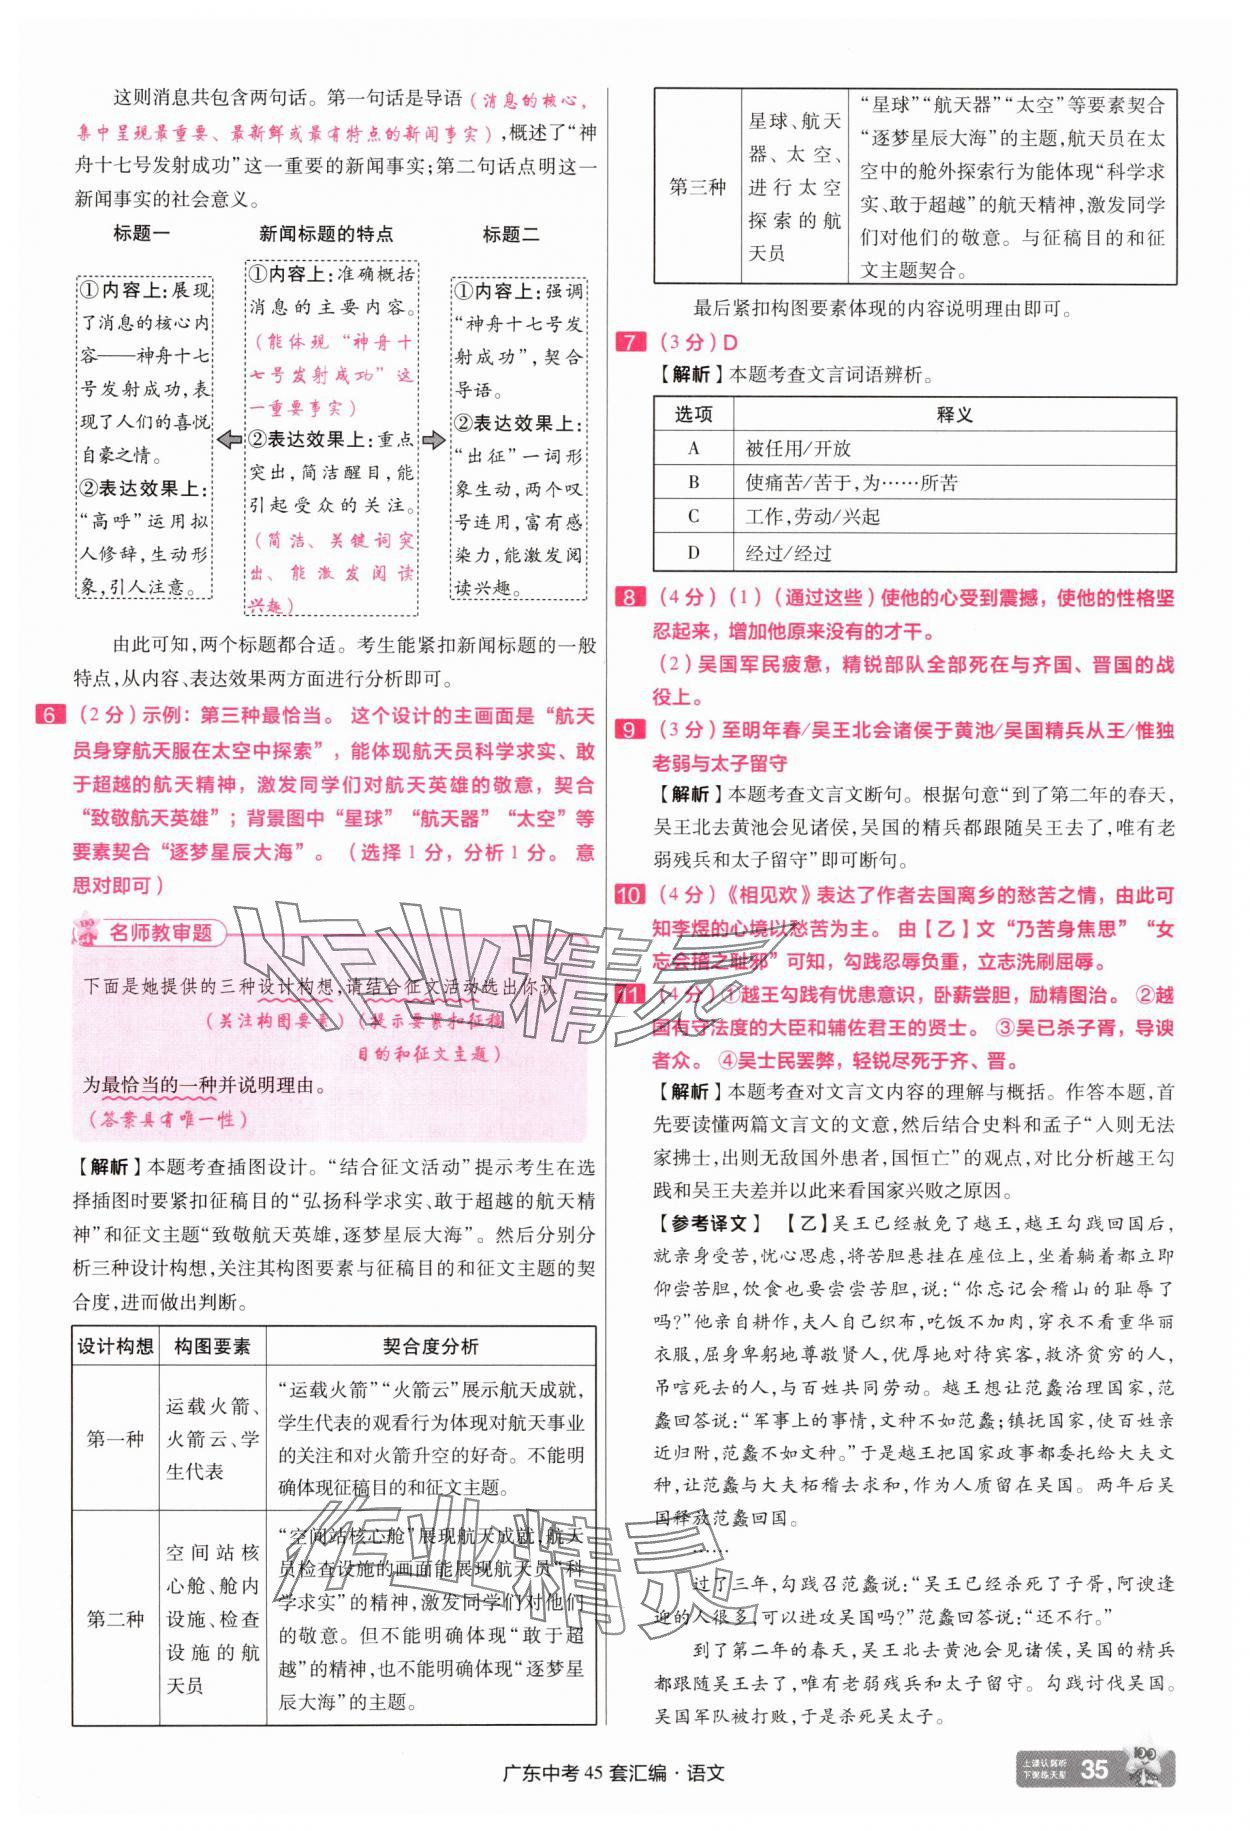 这则消息共包含两句话。第一句话是导语(消息的核心,
集中呈现最重要、最新鲜或最有特点的新闻事实),概述了“神
舟十七号发射成功”这一重要的新闻事实;第二句话点明这一
新闻事实的社会意义。
标题一
①内容上:展现
了消息的核心内
容——神舟十七
号发射成功,表
现了人们的喜悦
自豪之情。
②表达效果上:
“高呼”运用拟
人修辞,生动形
象,引人注意。
新闻标题的特点
①内容上:准确概括
消息的主要内容。
(能体现“神舟十
七号发射成功”这
一重要事实)
②表达效果上:重点
突出,简洁醒目,能
引起受众的关注。
(简洁、关键词突
出、能激发阅读
兴趣)
标题二
①内容上:强调
“神舟十七号发
射成功”,契合
导语。
②表达效果上:
“出征”一词形
象生动,两个叹
号连用,富有感
染力,能激发阅
读兴趣。
由此可知,两个标题都合适。考生能紧扣新闻标题的一般
特点,从内容、表达效果两方面进行分析即可。
6 (2分)示例:第三种最恰当。这个设计的主画面是“航天
员身穿航天服在太空中探索”,能体现航天员科学求实、敢
于超越的航天精神,激发同学们对航天英雄的敬意,契合
“致敬航天英雄”;背景图中“星球”“航天器”“太空”等
要素契合“逐梦星辰大海”。(选择1分,分析1分。意
思对即可)
名师教审题
下面是她提供的三种设计构想,请结合征文活动选出你认
(关注构图要素)(提示要紧扣征稿
目的和征文主题)
为最恰当的一种并说明理由。
(答案具有唯一性)
【解析】本题考查插图设计。“结合征文活动”提示考生在选
择插图时要紧扣征稿目的“弘扬科学求实、敢于超越的航天精
神”和征文主题“致敬航天英雄,逐梦星辰大海”。然后分别分
析三种设计构想,关注其构图要素与征稿目的和征文主题的契
合度,进而做出判断。
设计构想 构图要素 契合度分析
第一种
运载火箭、
火箭云、学
生代表
“运载火箭”“火箭云”展示航天成就,
学生代表的观看行为体现对航天事业
的关注和对火箭升空的好奇。不能明
确体现征稿目的和征文主题。
第二种
空间站核
心舱、舱内
设施、检查
设施的航
天员
“空间站核心舱”展现航天成就,航天
员检查设施的画面能展现航天员“科
学求实”的精神,激发同学们对他们
的敬意。但不能明确体现“敢于超
越”的精神,也不能明确体现“逐梦星
辰大海”的主题。
第三种
星球、航天
器、太空、
进行太空
探索的航
天员
“星球”“航天器”“太空”等要素契合
“逐梦星辰大海”的主题,航天员在太
空中的舱外探索行为能体现“科学求
实、敢于超越”的航天精神,激发同学
们对他们的敬意。与征稿目的和征
文主题契合。
最后紧扣构图要素体现的内容说明理由即可。
7 (3分)D
【解析】本题考查文言词语辨析。
选项 释义
A 被任用/开放
B 使痛苦/苦于,为……所苦
C 工作,劳动/兴起
D 经过/经过
8 (4分)(1)(通过这些)使他的心受到震撼,使他的性格坚
忍起来,增加他原来没有的才干。
(2)吴国军民疲惫,精锐部队全部死在与齐国、晋国的战
役上。
9 (3分)至明年春/吴王北会诸侯于黄池/吴国精兵从王/惟独
老弱与太子留守
【解析】本题考查文言文断句。根据句意“到了第二年的春天,
吴王北去黄池会见诸侯,吴国的精兵都跟随吴王去了,唯有老
弱残兵和太子留守”即可断句。
10 (4分)《相见欢》表达了作者去国离乡的愁苦之情,由此可
知李煜的心境以愁苦为主。由【乙】文“乃苦身焦思”“女
忘会稽之耻邪”可知,勾践忍辱负重,立志洗刷屈辱。
11 (4分)①越王勾践有忧患意识,卧薪尝胆,励精图治。②越
国有守法度的大臣和辅佐君王的贤士。③吴已杀子胥,导谀
者众。④吴士民罢弊,轻锐尽死于齐、晋。
【解析】本题考查对文言文内容的理解与概括。作答本题,首
先要读懂两篇文言文的文意,然后结合史料和孟子“入则无法
家拂士,出则无敌国外患者,国恒亡”的观点,对比分析越王勾
践和吴王夫差并以此来看国家兴败之原因。
【参考译文】【乙】吴王已经赦免了越王,越王勾践回国后,
就亲身受苦,忧心思虑,将苦胆悬挂在座位上,坐着躺着都立即
仰尝苦胆,饮食也要尝尝苦胆,说:“你忘记会稽山的耻辱了
吗?”他亲自耕作,夫人自己织布,吃饭不加肉,穿衣不看重华丽
衣服,屈身卑躬地尊敬贤人,优厚地对待宾客,救济贫穷的人,
吊唁死去的人,与百姓共同劳动。越王想让范蠡治理国家,范
蠡回答说:“军事上的事情,文种不如范蠡;镇抚国家,使百姓亲
近归附,范蠡不如文种。”于是越王把国家政事都委托给大夫文
种,让范蠡与大夫柘稽去求和,作为人质留在吴国。两年后吴
国释放范蠡回国。
……
过了三年,勾践召范蠡说:“吴王已经杀死了子胥,阿谀逢
迎的人很多,可以进攻吴国吗?”范蠡回答说:“还不行。”
到了第二年的春天,吴王北去黄池会见诸侯,吴国的精兵
都跟随吴王去了,唯有老弱残兵和太子留守。勾践讨伐吴国。
吴国军队被打败,于是杀死吴太子。
作业精灵
作业精灵
广东中考45套汇编·语文
35